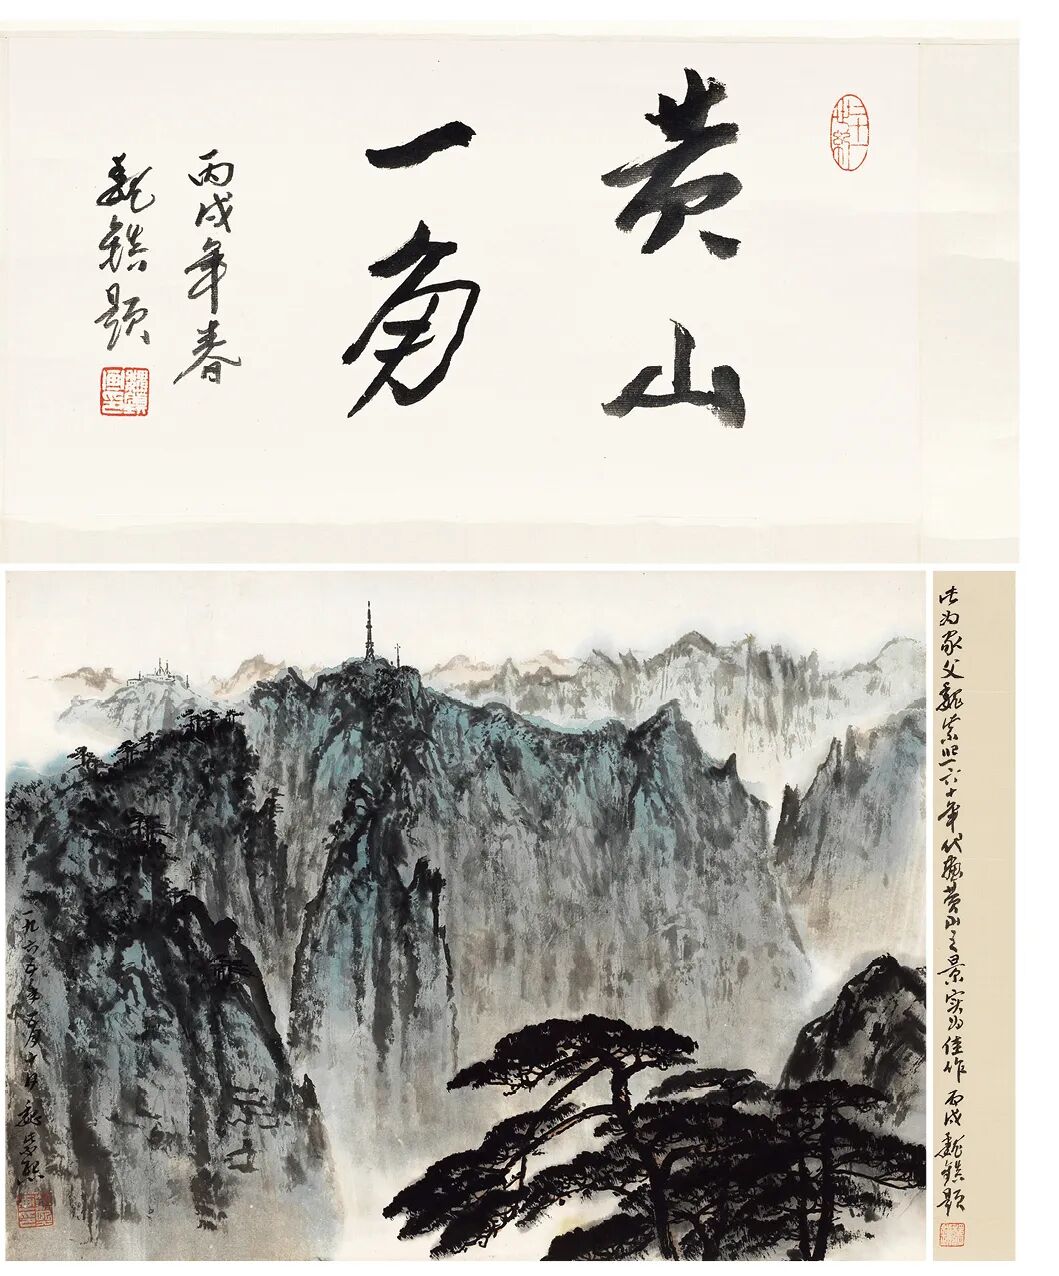 二十一世纪
黄山
一角
丙戌年春
魏镇题
一九六五年五月十日 魏紫熙
此为家父魏紫熙六十年代黄山之景实为佳作 丙戌 魏镇题